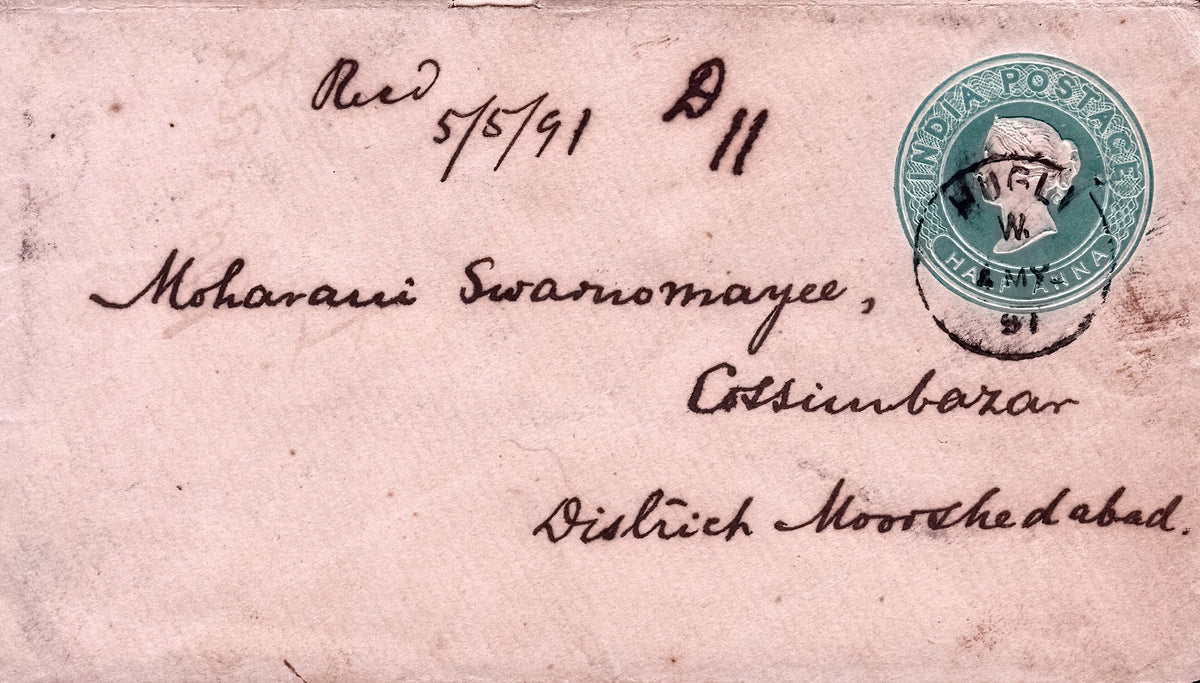 Recd
5/5/91
D
11
INDIA POSTAGE
HALF ANNA
HUBLI
W.
MY.
91
Moharani Swarnomayee,
Cossimbazar
District Moorshedabad.